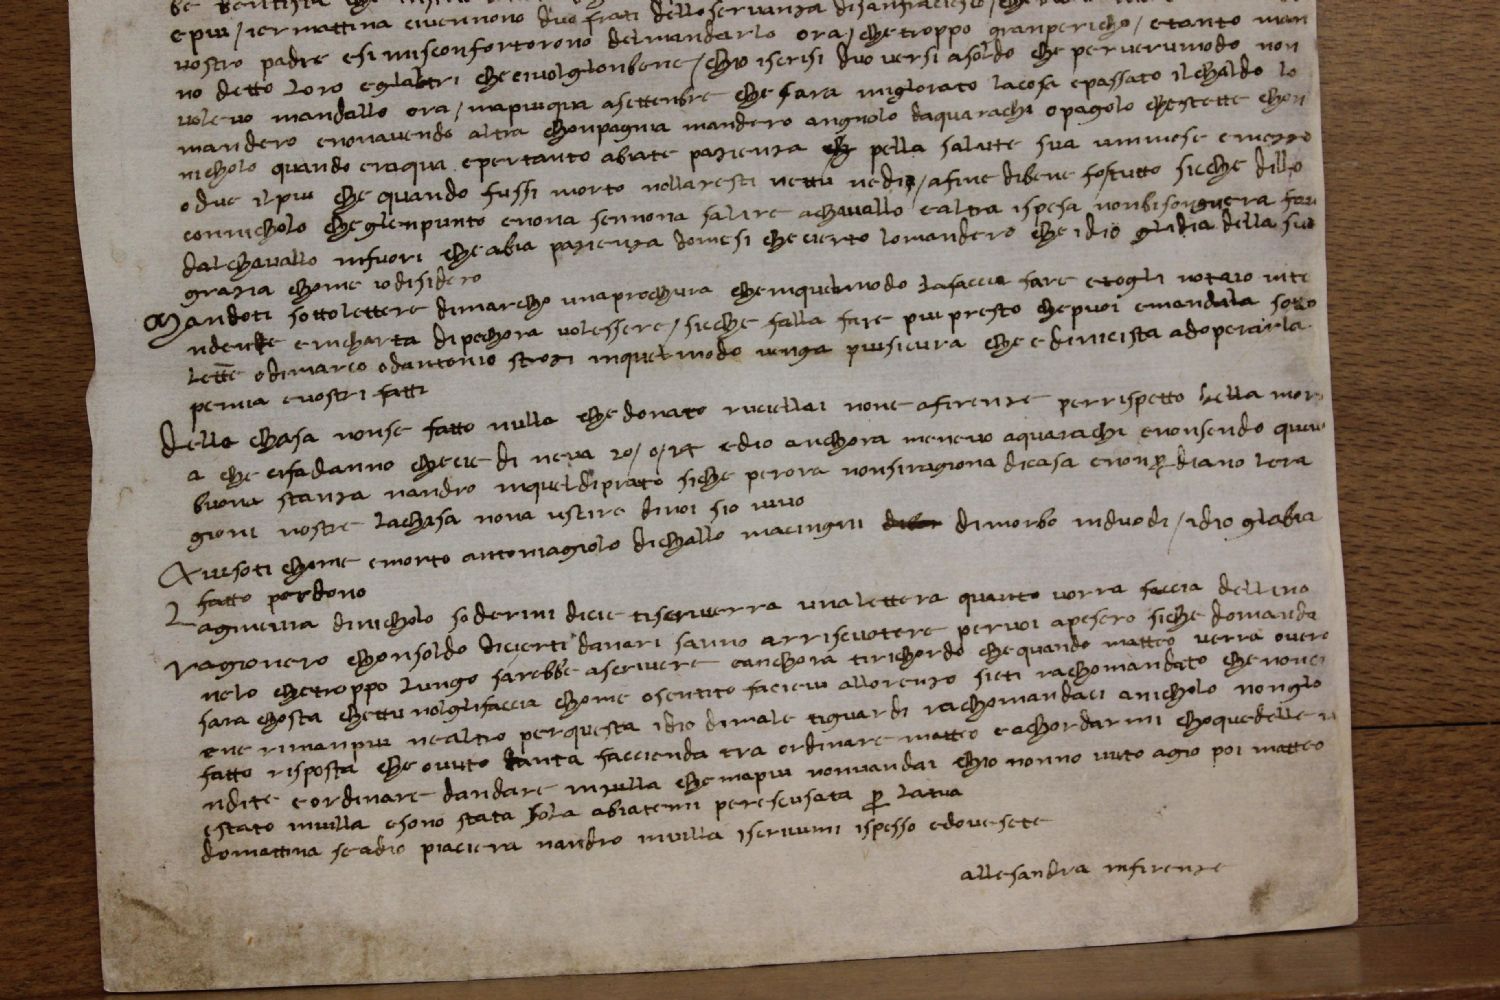 epiu / iermattina civennono duo frati dello servanza disanfraciescho / che
vostro padre esimisconfortorono delmandarlo ora / chetroppo granpericho / etanto man
no detto loro eglialtri chemivolglonbene / chio iscrisi duo versi asoldo che perverumodo non
volevo mandallo ora / mapiuqua asettenbre che sara miglorato lacosa epassato ilchaldo lo
mandero enonavendo altra chonpagnia mandero angnolo daquarachi opagolo chestette chon
nicholo quando eraqua epertanto abiate pazienza pella salute sua unmese emezzo
odue ilpiu che quando fussi morto nollaresti nettu nedio / afine dibene fotutto sicche dillo
connicholo cheglienpunto enona sennona salire achavallo ealtra ispesa nonbisongnera fare
dalchavallo infuori cheabia pazienza domesi checierto lomandero che idio glidia della sua
grazia chome iodisidero
Mandoti sottolettere dimarcho unaprochura cheinquelmodo lafaccia fare etogli notaio inte
ndente eincharta dipechora volessere / sicche falla fare piu presto chepuoi emandala sotto
lettere odimarco odantonio strozi inquelmodo venga piusicura che edinicista adoperarla
penvia evostri fatti
Della chasa nonse fatto nulla che donato ruciellai none afirenze perrispetto della mori
a che cifadanno checie di neva 20 / o / 24 edio anchora menevo aquarachi enonsendo quivi
buona stanza nandro inqueldiprato siche perora nonsiragiona dicasa enonperdiano lera
gioni nostre lachasa nona uscire dinoi sio vivo
Aviusoti chome emorto antomagiolo dichallo macingni dimorbo induodi / idio gliabia
fatto perdono
Laginevra dinicholo soderini dicie tiscriverra unalettera quanto vorra faccia dellino
ragionero chonsoldo dicierti danari sanno arriscuotere pervoi apesero siche domanda
nelo chetroppo lungo sarebbe ascrivere eanchora tirichordo chequando matteo verra overo
sara chosta chettu nolglifaccia chome osentito facievi allorenzo sieti rachomandato chenonci
ene rimanpiu nealtro perquesta idio dimale tiguardi rachomandaci anicholo nonglo
fatto risposta che ovuto tanta faccienda tra ordinare matteo eachordarmi choquedelle ve
ndite eordinare dandare invilla chemapiu nonvandai chio nonno vuto agio poi matteo
estato invilla esono stata sola abiatemi perescusata per latua
domattina seadio piaciera nandro invilla iscrivimi ispesso edovesete
allesandra infirenze